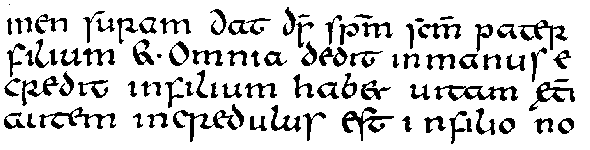 men suram dat ds spm scm pater
filium &. Omnia dedit inmanus e
credit infilium habet uitam &
autem incredulus est infilio no